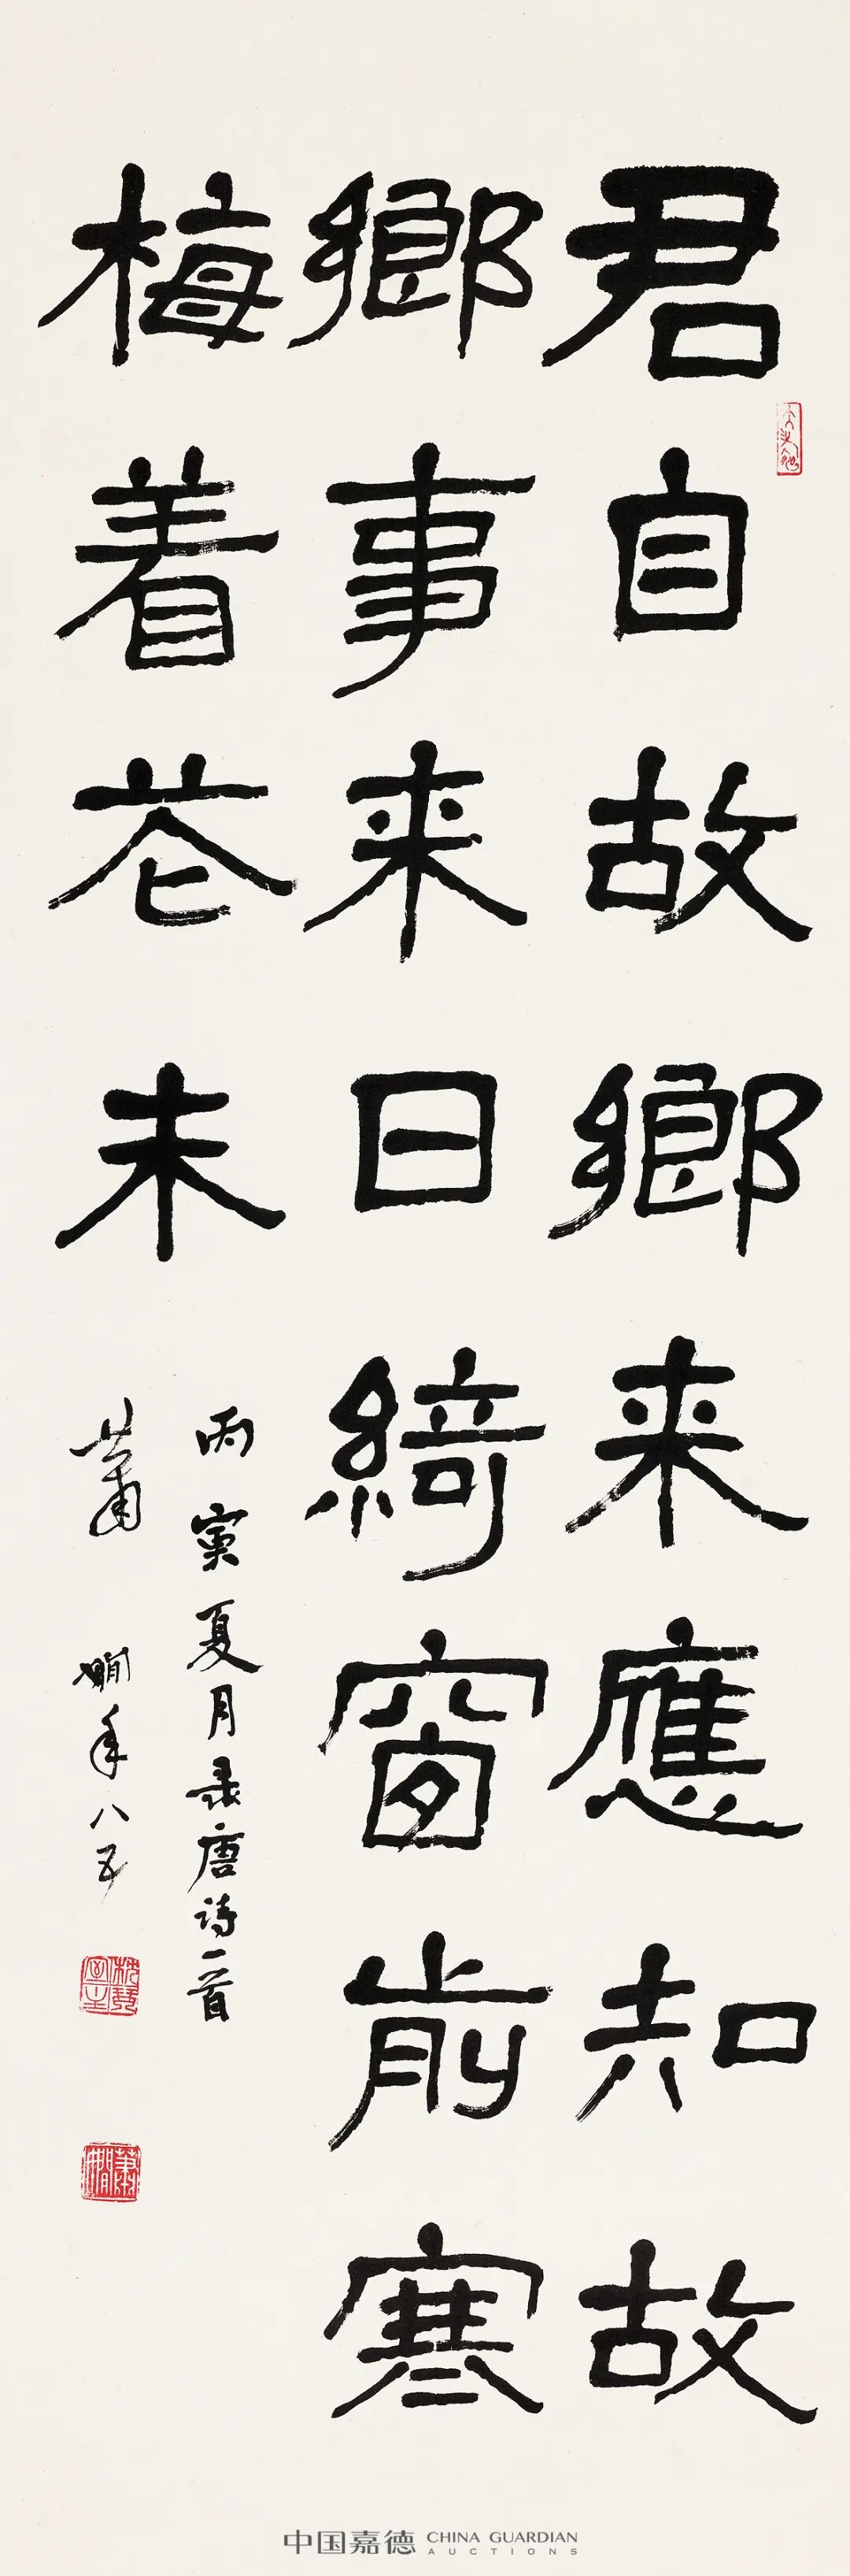 君自故鄉来應知故
鄉事来日綺窗前寒
梅着花未
丙寅夏月录唐诗一首
蕭嫻年八五
枕琴室主
蕭嫻
中国嘉德 CHINA GUARDIAN
AUCTIONS